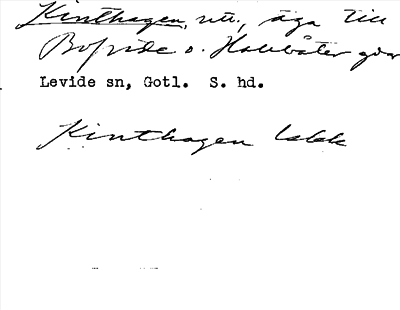 Kinthagen, utt., äga till
Bofride o. Hallvåter gdar
Levide sn, Gotl. S. hd.
Kinthagen